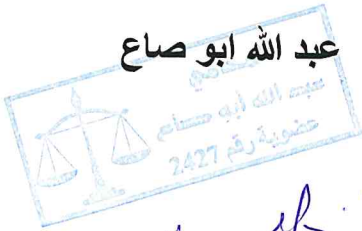 عبد الله ابو صاع
المحامي
عبد الله ابو صاع
عضوية رقم 2427